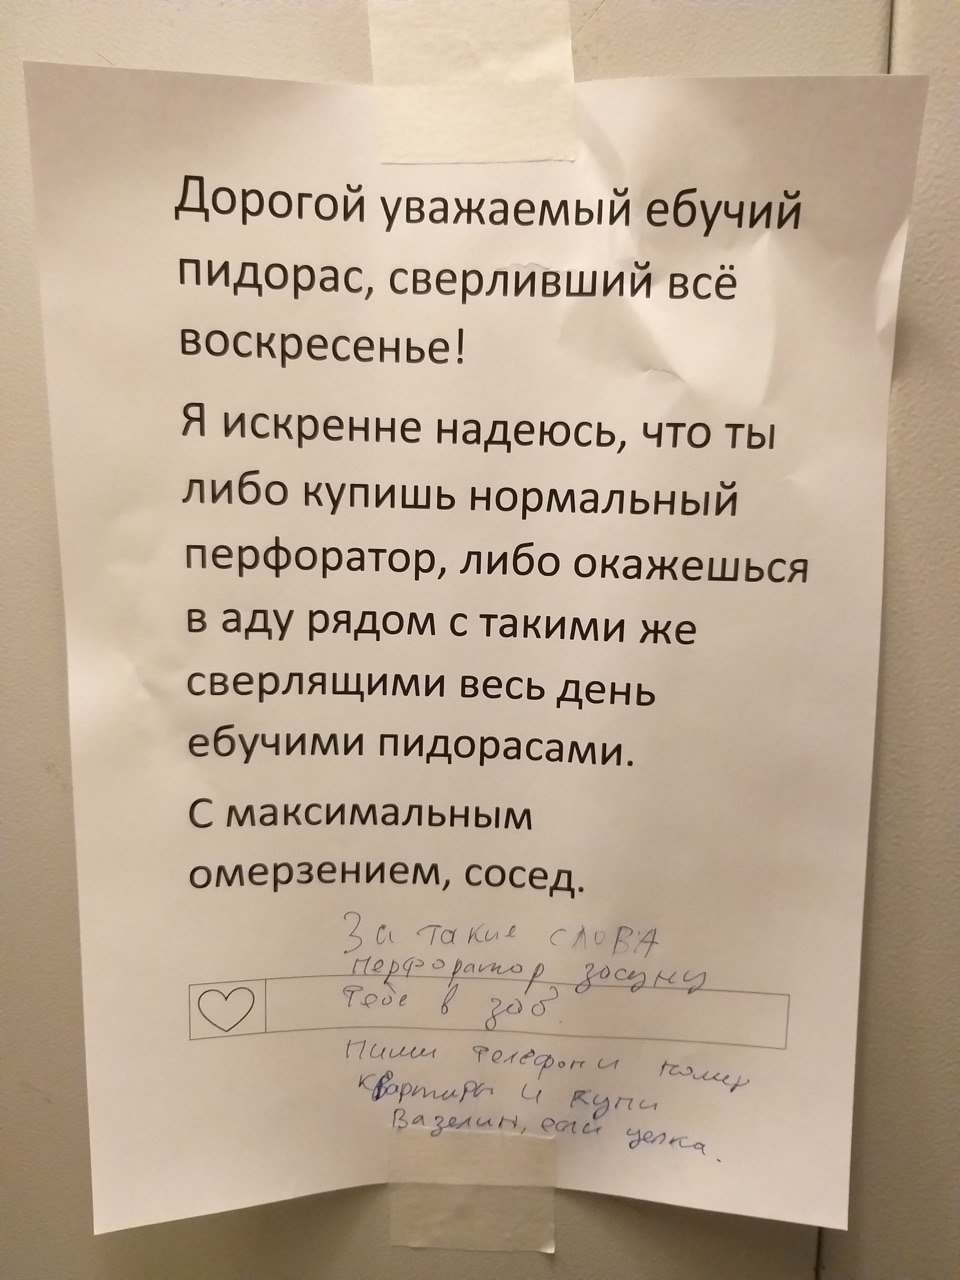 Дорогой уважаемый ебучий
пидорас, сверливший всё
воскресенье!
Я искренне надеюсь, что ты
либо купишь нормальный
перфоратор, либо окажешься
в аду рядом с такими же
сверлящими весь день
ебучими пидорасами.
С максимальным
омерзением, сосед.
За такие слова
перфоратор засуну
тебе в зоб.
Пиши телефон и номер
квартиры и купи
Вазелин, если целка.